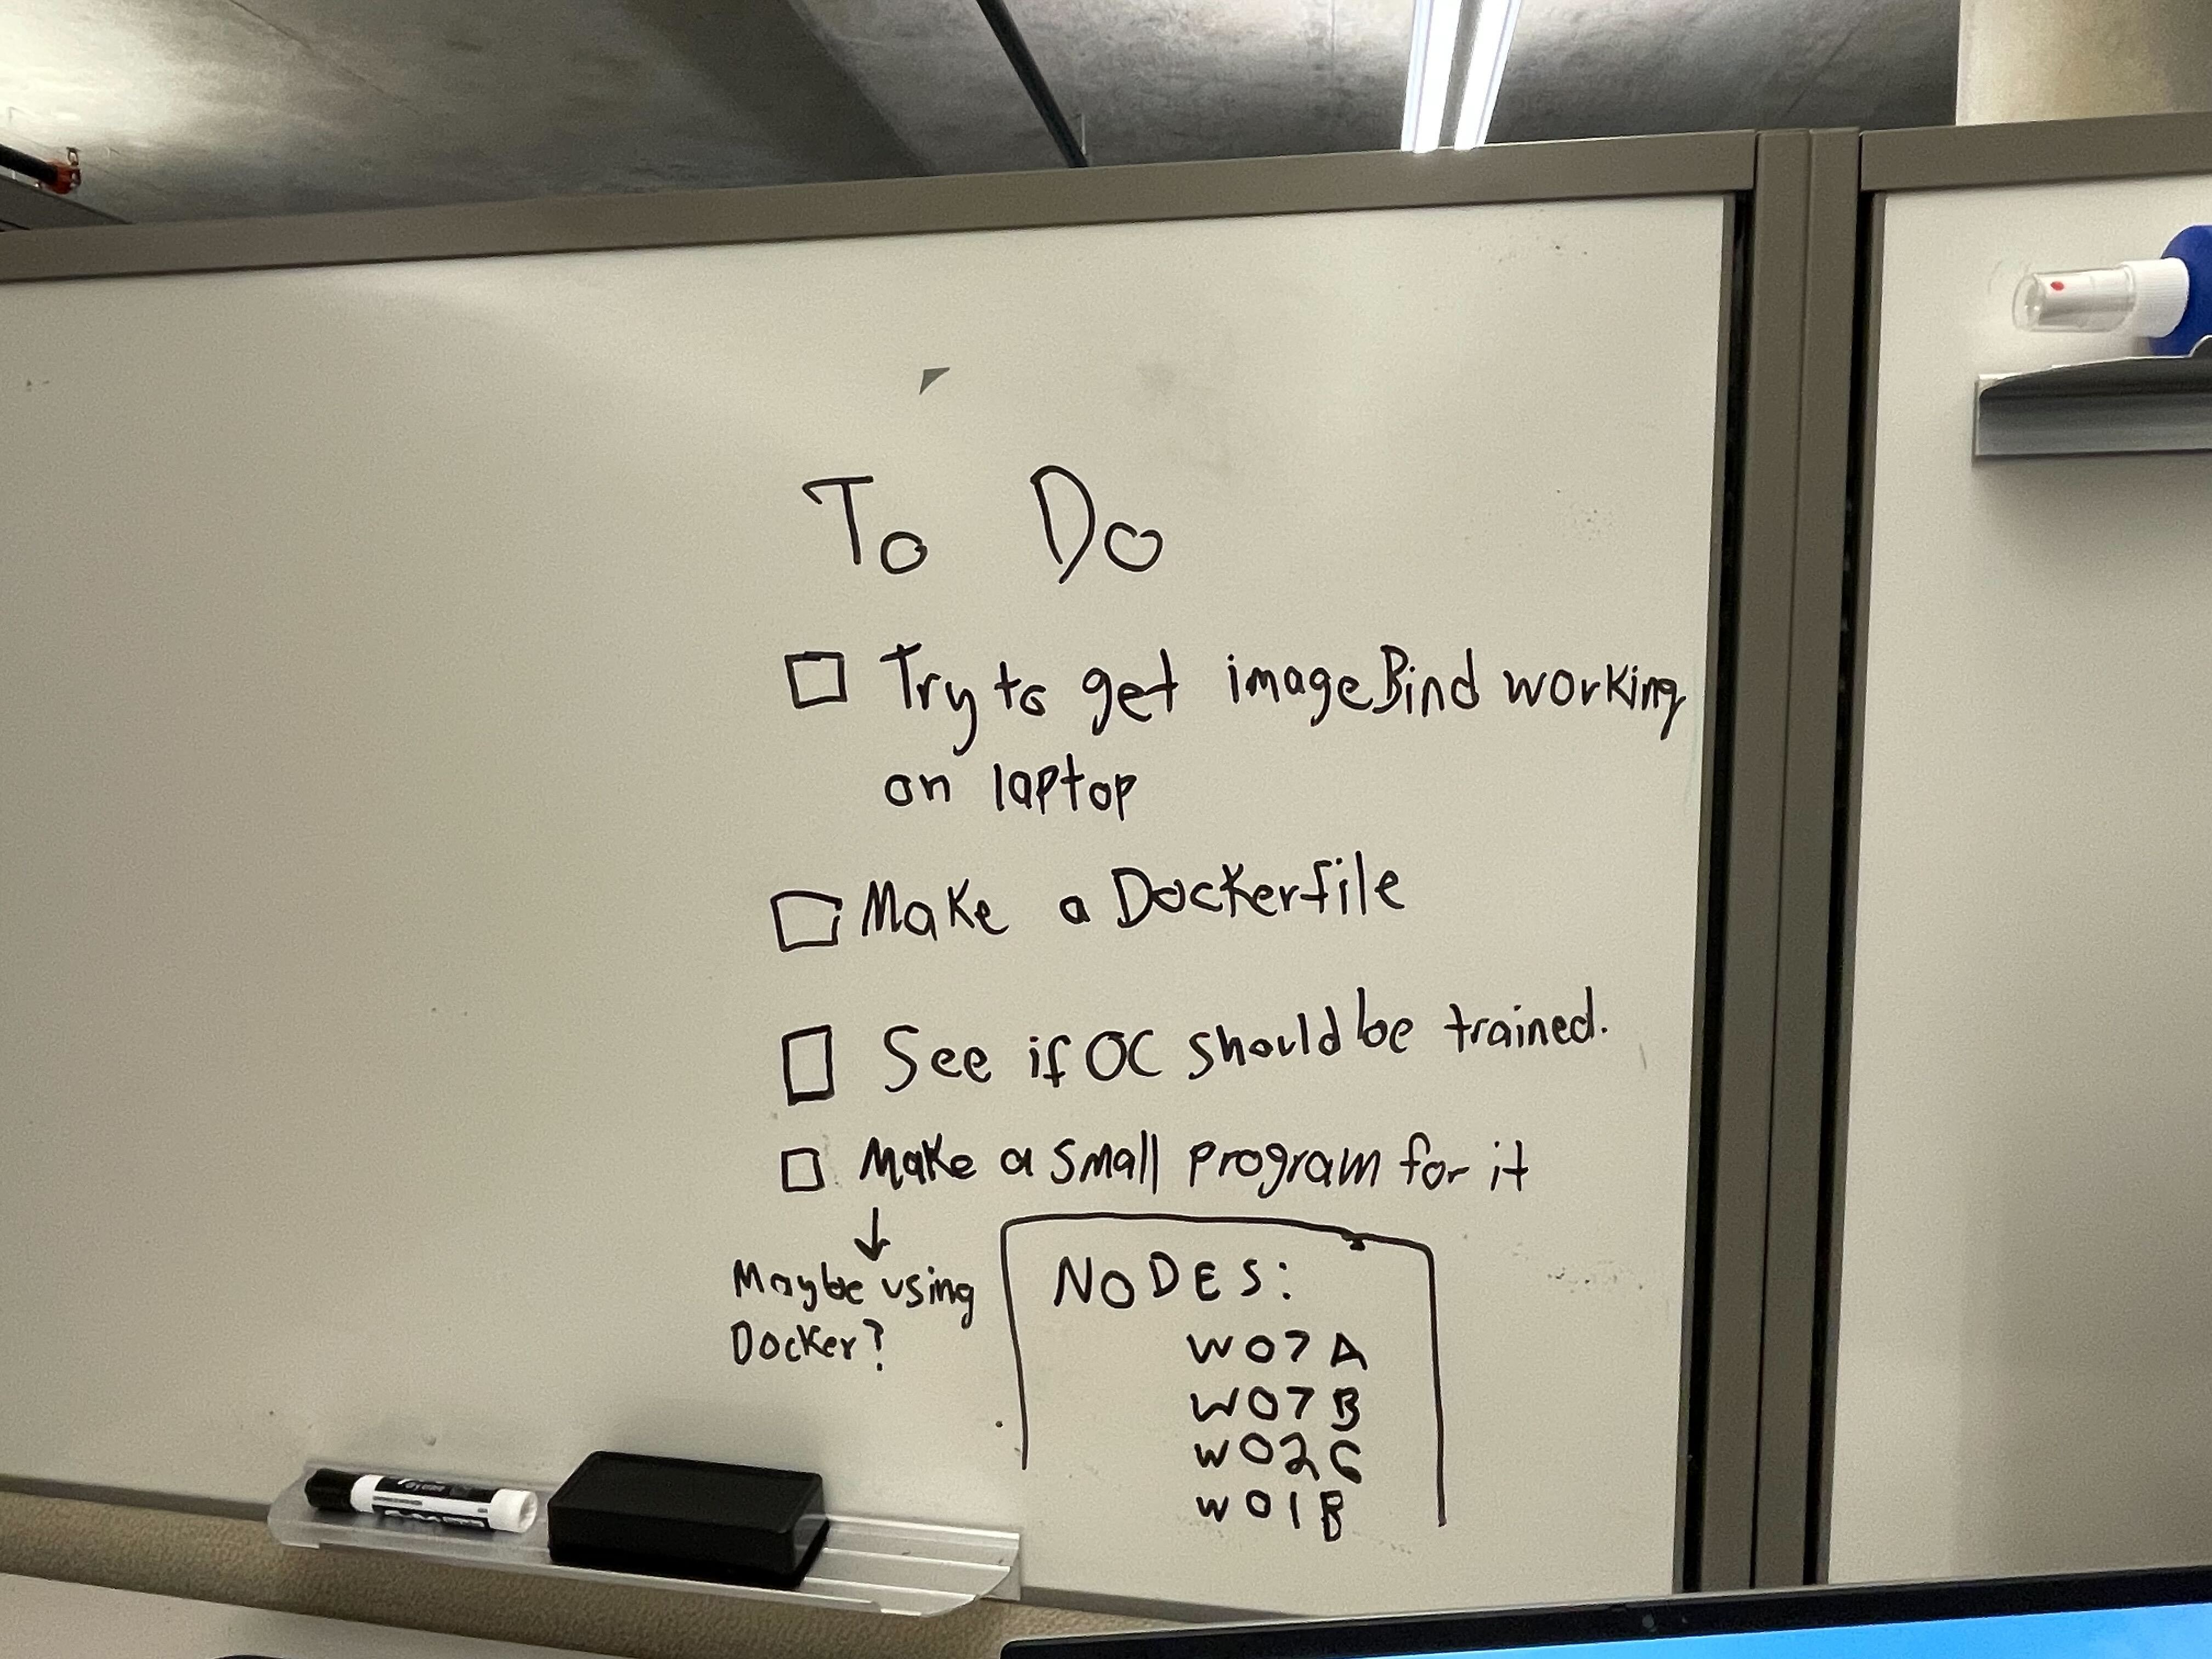 To Do
Try to get imageBind working
on laptop
Make a Dockerfile
See if OC should be trained.
Make a small program for it
Maybe using
Docker?
NODES:
W07A
W07B
W02C
W01B